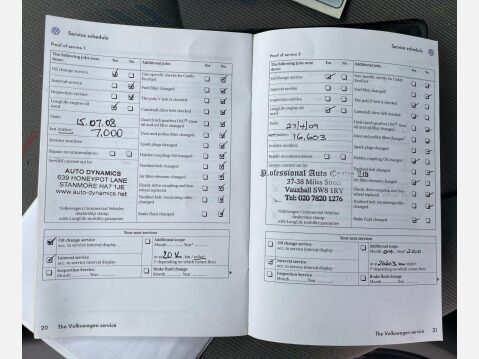 Service schedule
Proof of service 1
The following jobs were done: Yes No
Oil change service
Interval service
Inspection service
LongLife engine oil used
Date:
15.07.08
km miles:
7,000
Invoice number:
Repair recommendations:
Service carried out by:
AUTO DYNAMICS
639 HONEYPOT LANE
STANMORE HA7 1JE
www.auto-dynamics.net
Volkswagen Commercial Vehicles
dealership stamp
with LongLife mobility guarantee
Additional jobs: Yes No
Gas-specific checks for Caddy EcoFuel
Fuel filter changed
The poly V belt is checked
Camshaft drive belt checked
Dual clutch gearbox DSG® Gear oil and oil filter changed
Dust and pollen filter changed
Spark plugs changed
Haldex coupling Oil changed
Air filter element changed
Electric drive coupling and free-wheel replaced
Toothed belt tensioning roller changed
Brake fluid changed
Your next services
Oil change service
acc. to service interval display
Interval service
acc. to service interval display
Inspection Service
Month Year
Additional scope
Month Year
or at 20K km / miles¹
(¹ depending on which comes first)
Brake fluid change
Month Year
20 The Volkswagen service
Service schedule
Proof of service 2
The following jobs were done: Yes No
Oil change service
Interval service
Inspection service
LongLife engine oil used
Date:
27/4/09
km miles:
16,603
Invoice number:
Repair recommendations:
Service carried out by:
Professional Auto Ltd
37-38 Miles Street
Vauxhall SW8 1RY
Tel: 020 7820 1276
Volkswagen Commercial Vehicles
dealership stamp
with LongLife mobility guarantee
Additional jobs: Yes No
Gas-specific checks for Caddy EcoFuel
Fuel filter changed
The poly V belt is checked
Camshaft drive belt checked
Dual clutch gearbox DSG® Gear oil and oil filter changed
Dust and pollen filter changed
Spark plugs changed
Haldex coupling Oil changed
Air filter element changed
Electric drive coupling and free-wheel replaced
Toothed belt tensioning roller changed
Brake fluid changed
Your next services
Oil change service
acc. to service interval display
Interval service
acc. to service interval display
Inspection Service
Month Year
Additional scope
Month 04 Year 2010
or at 26603 km miles¹
(¹ depending on which comes first)
Brake fluid change
Month Year
The Volkswagen service 21